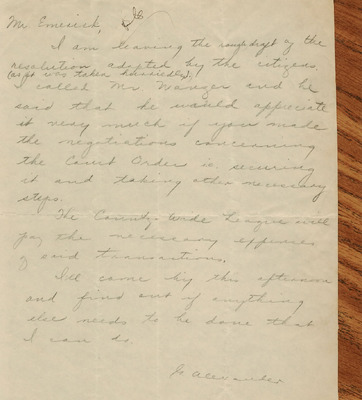 Mr. Emerich,
I am leaving the rough draft of the
resolution adopted by the citizens,
(as it was taken hurriedly);
I called Mr. Wanger and he
said that he would appreciate
it very much if you made
the negotiations concerning
the Court Order i.e. securing
it and taking other necessary
steps.
The County-Wide League will
pay the necessary expenses
of said transactions.
I'll come by this afternoon
and find out if anything
else needs to be done that
I can do.
Alexander